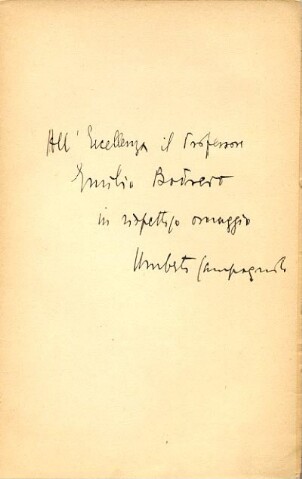 All' Eccellenza il Professore
Emilio Bodrero
in rispettoso omaggio
Umberto Campagnolo